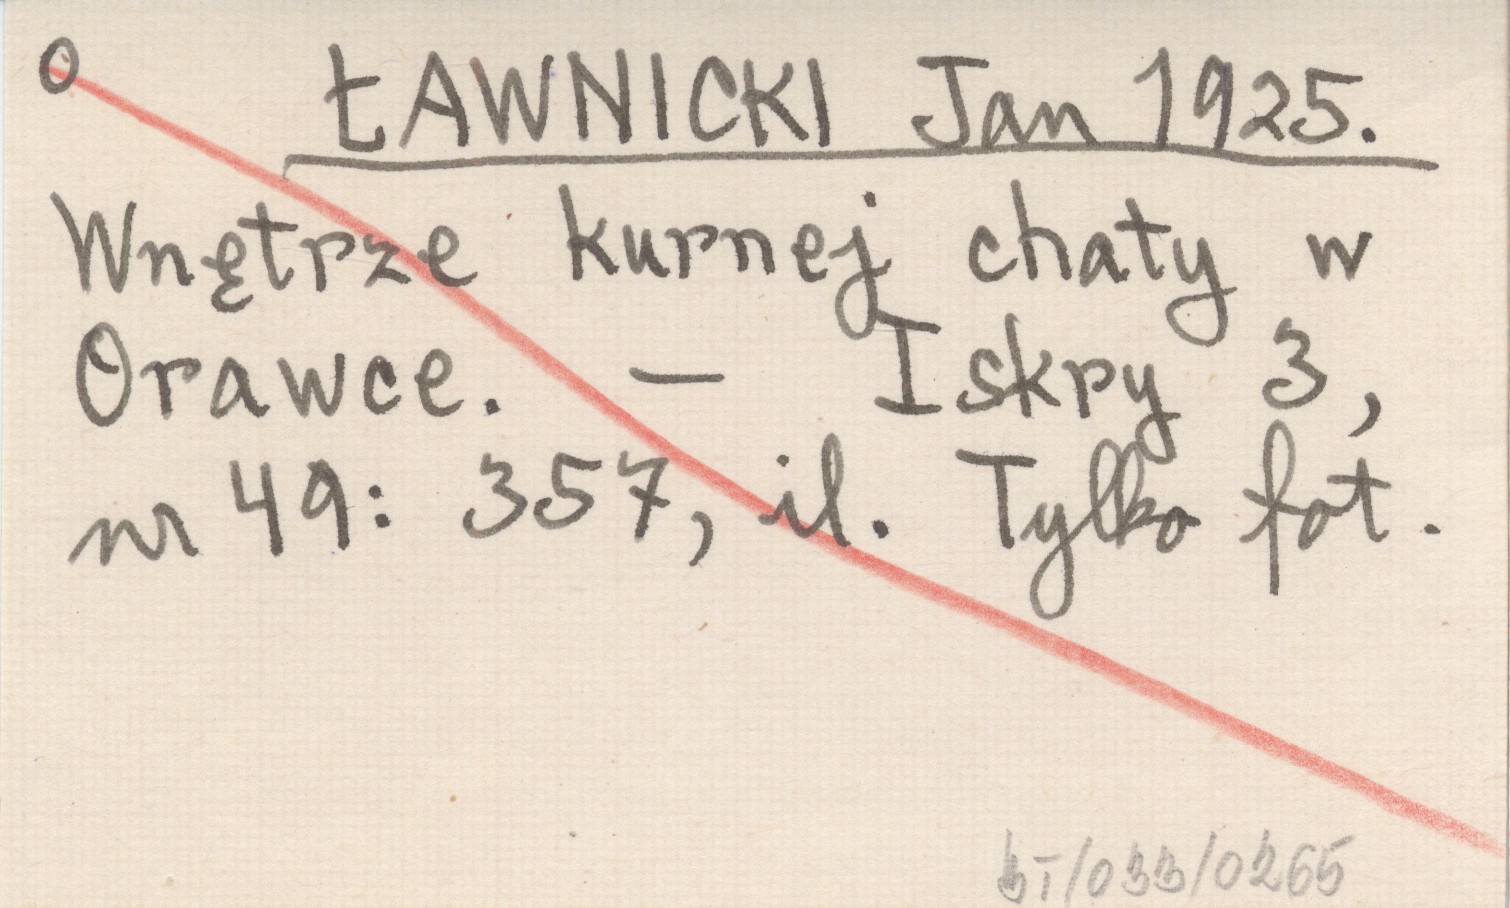 O
ŁAWNICKI Jan 1925.
Wnętrze kurnej chaty w
Orawce. — Iskry 3,
nr 49: 357, il. Tylko fot.
BT/033/0265